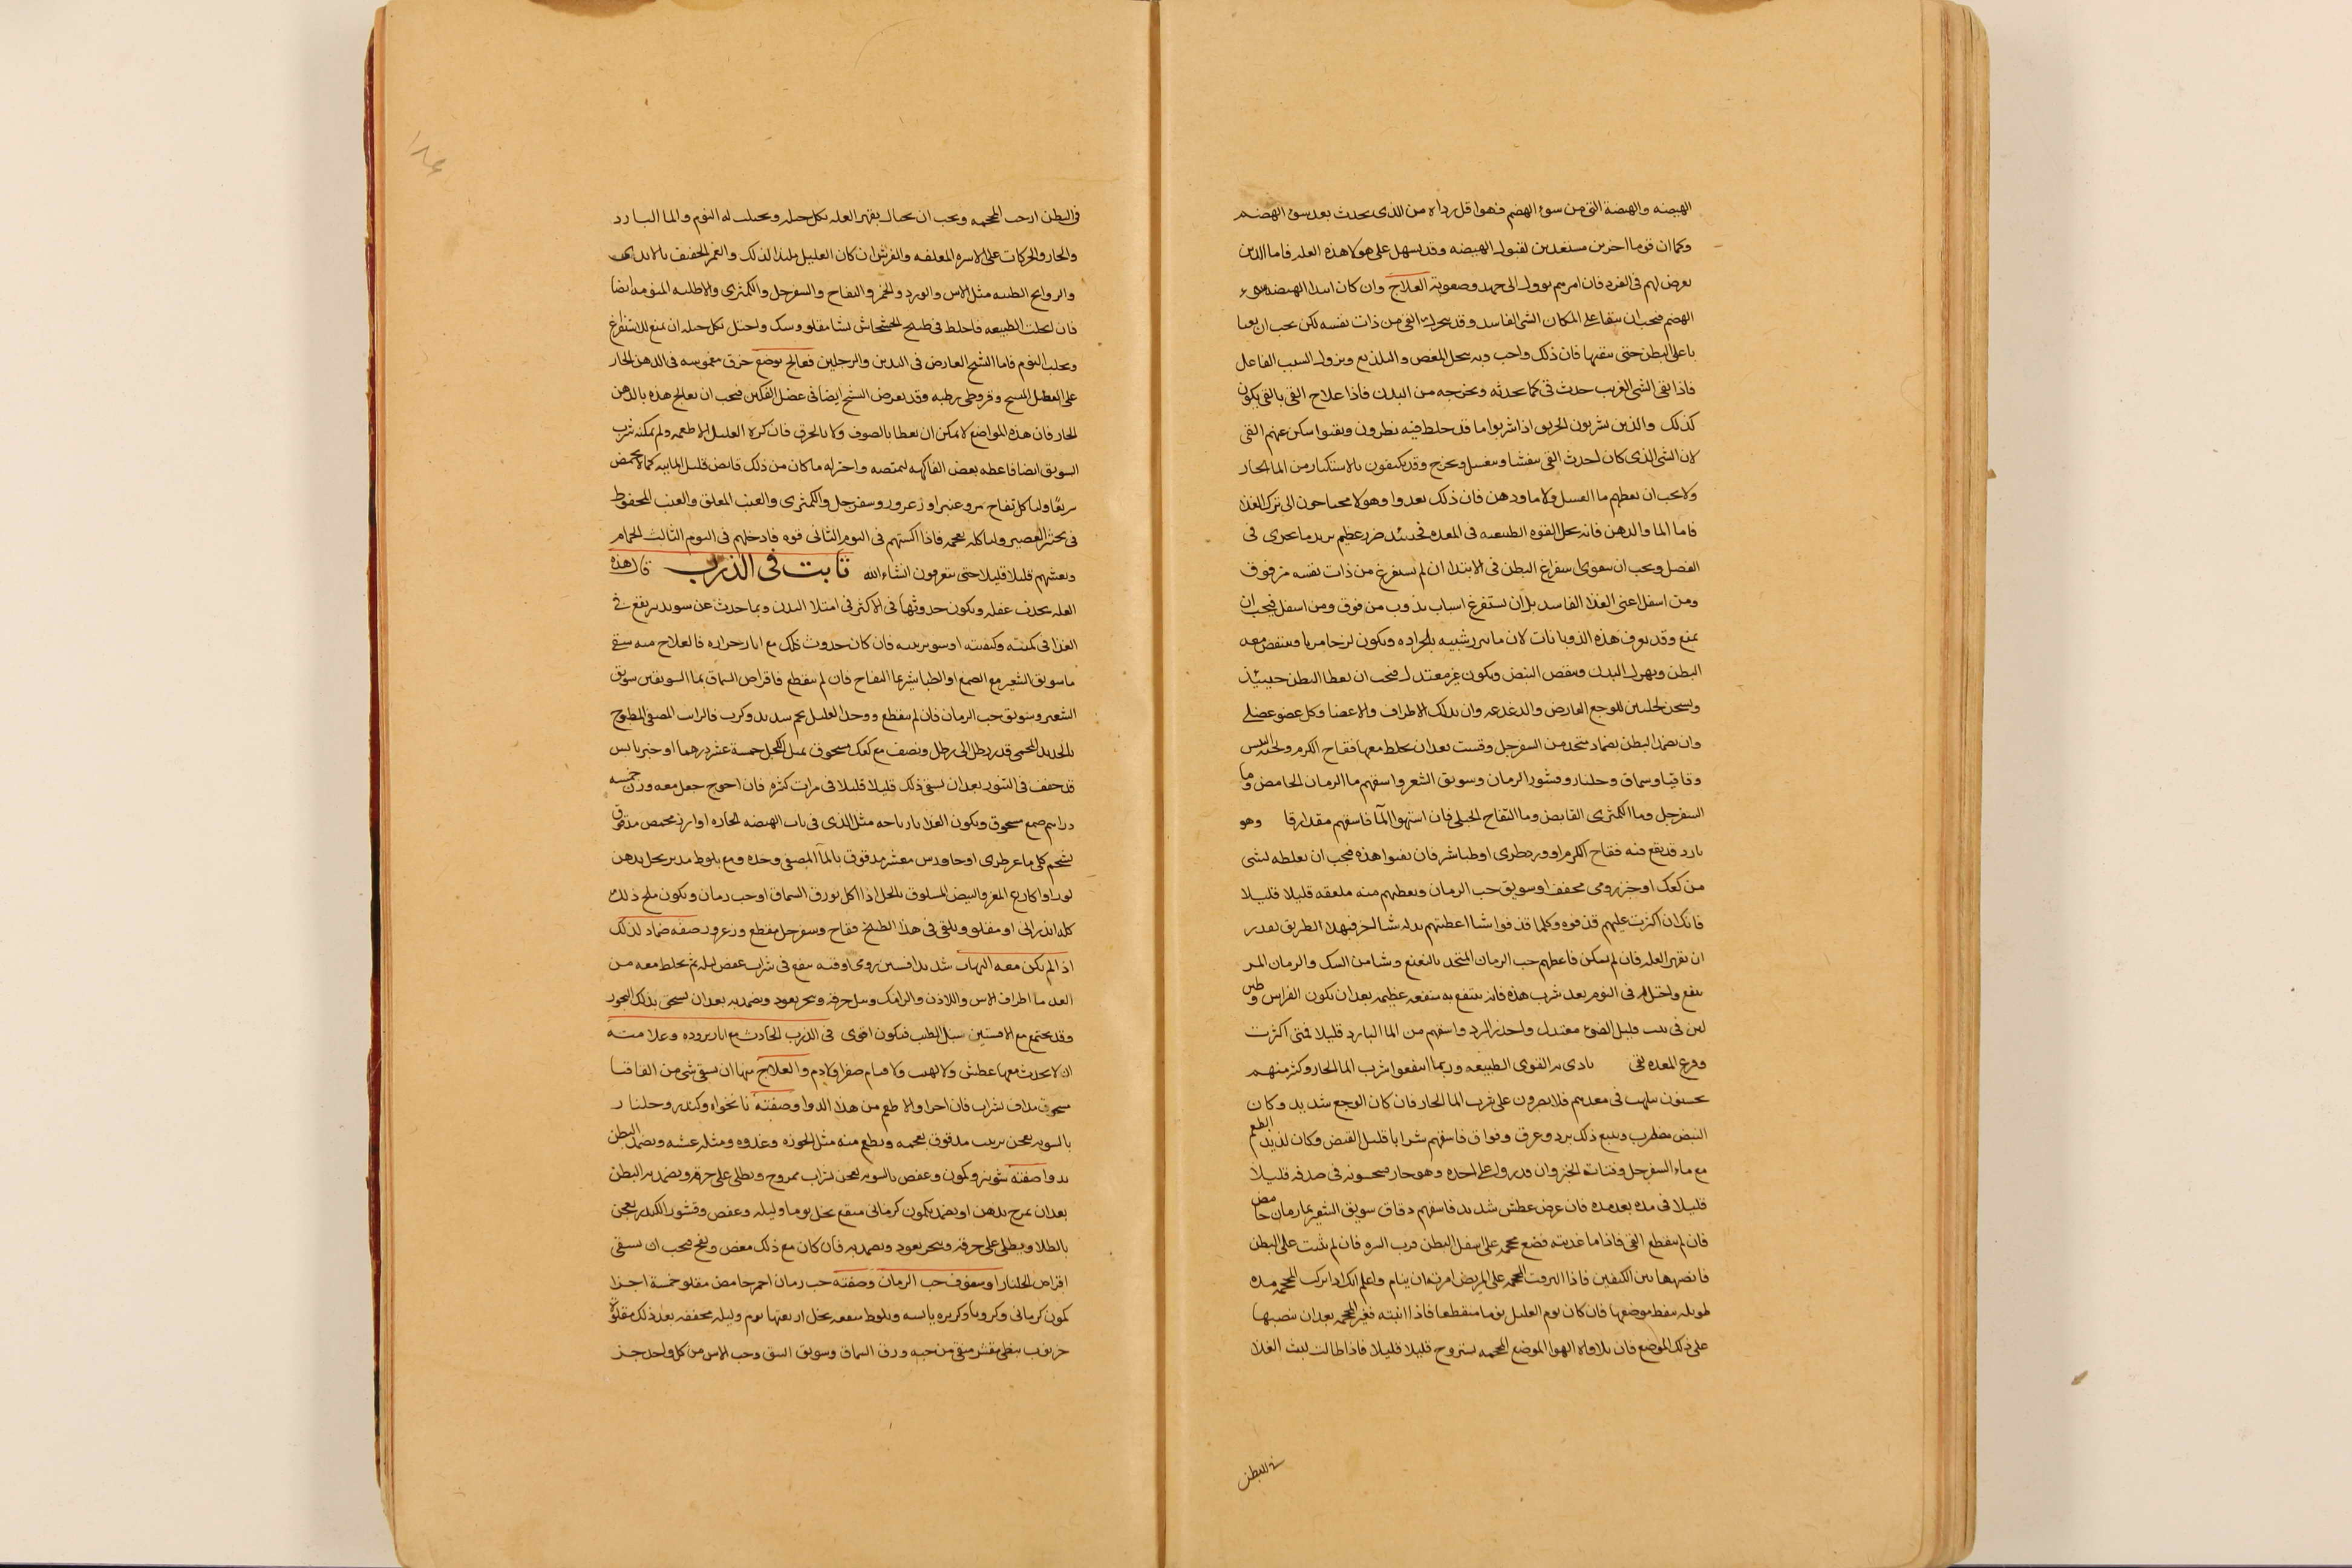 الهيضه والهيضة التى من سوء الهضم فهو اقل رداه من الذى يحدث بعد سوء الهضم
وكما ان قوما اخرين مستعدين لقبول الهيضه وقد يسهل على هولا هذه العله فاما الذين
يعرض لهم فى الفرد فان امرهم يوول الى جهد وصعوبة العلاج وان كان ابتدا الهيضه سوء
الهضم فيجب ان ينقا على المكان الشى الفاسد وقد يتحرك القى من ذات نفسه لكن يجب ان
باعلى البطن حتى ينقيها فان ذلك واجب وبه ينحل المغص والتلذيع ويزول السبب الفاعل
فاذا بقى الشى الغريب حدث قى كما يحدثه ويخرجه من البدن فاذا علاج القى بالقى يكون
كذلك والذين يشربون الخربق اذا شربوا ما قد خلط فيه نطرون وتقيوا سكن عنهم القى
لان الشى الذى كان يحدث القى ينغسل ويخرج وقد يكتفون بالاستكثار من الما الحار
ولا يجب ان يعطيهم ما العسل ولا ما ودهن فان ذلك يغدوا وهولا محتاجون الى ترك الغذا
فاما الما والدهن فانه يحل القوه الطبيعيه فى المعده فيحدث ضرر عظيم يريد ما يجرى فى
الفصل ويجب ان استفراغ البطن فى الابتدا ان لم يستفرغ من ذات نفسه من فوق
ومن اسفل اعنى الغذا الفاسد بل ان يستفرغ اسباب ذوب من فوق ومن اسفل فيجب ان
يمنع وقد يعرف هذه الذوبانات لان ما يبرز شبيه بالخراده ويكون لزجا مريا وينتفض معه
البطن ويهزل البدن وينقص النبض ويكون غير معتدل فيجب ان يعطا البطن حينيذ
ويسخن للوجع العارض والدغدغه وان يدلك الاطراف والاعضا وكل عضو عضلى
وان يضمد البطن بضماد متخذ من السفرجل وقسب بعد ان يخلط معها فقاح الكرم ولحية التيس
وقاقيا وسماق وجلنار وقشور الرمان وسويق الشعير واسقهم ما الرمان الحامض وما
السفرجل وما الكمثرى القابض وما التفاح الجبلى فان اشتهوا الما فاسقهم مقدارا وهو
بارد قد يقع فيه فقاح الكرم او ورد طرى او طباشير فان تقيوا هذه فيجب ان يخلطه بشى
من كعك او خبز رومى مجفف او سويق حب الرمان ويعطيهم منه ملعقه قليلا قليلا
فانك ان اكثرت عليهم قذفوه وكلما قذفوا شيا اعطيتهم بدله شيا اخر فبهذا الطريق تقدر
ان تقهر العله فان لم يسكن فاعطهم حب الرمان المتخذ بالنعنع وشيا من السك والرمان المر
ينفع واحتل فى النوم بعد شرب هذه فانه ينتفع به منفعه عظيمه بعد ان يكون الفراش وطى
لين فى بيت قليل الضوء معتدل واحذر البرد واسقهم من الما البارد قليلا فمتى اكثرت
وقرع المعده بقى تاذى به القوى الطبيعه وربما انتفعوا بشرب الما الحار وكثير منهم
يحسون بلهب فى معدهم فلا يصبرون على شرب الما الحار فان كان الوجع شديد وكان
النبض مضطرب ويتبع ذلك برد وعرق وفواق فاسقهم شرابا قليل القبض وكان لذيذ الطعم
مع ماء السفرجل وفتات الخبز وهو حار يتحسونه قليلا
قليلا فى مده بعد مده فان عرض عطش شديد فاسقهم دقاق سويق الشعير بما رمان حامض
فان لم ينقطع القى فاذا ما غذيته فضع محجمه على اسفل البطن قرب السره فان لم يثبت على البطن
فانصبها بين الكتفين فاذا المحجمه على المريض امرته ان ينام واعلم انك اذا تركت المحجمه مده
طويله سقط موضعها فان كان نوم العليل نوما منقطعا فاذا انتبه فغير المحجمه بعد ان تنصبها
على ذلك الموضع فان ملاقاه الهوا الموضع المحجمه يستروح قليلا قليلا فاذا طالت لبث الغذا
فى البطن
فى البطن ارحت المحجمه ويجب ان يحتال بقهر العله بكل حيله ويجلب له النوم والما البارد
والحار والحركات على الاسره المعلقه والفرش ان كان العليل ملتذا لذلك والغمز الخفيف بالايدى
والروايح الطيبه مثل الاس والورد والخمر والتفاح والسفرجل والكمثرى والاطليه المنومه ايضا
فان انحلت الطبيعه فاخلط فى طبيخ الخشخاش نشا مقلو وسك واحتل بكل حيله ان تمنع الاستفراغ
ويجلب النوم فاما التشنج العارض فى اليدين والرجلين فعالج بوضع خرق مغموسه فى الدهن الحار
على العضل المتشنج وقيروطى رطبه وقد يعرض التشنج ايضا فى عضل الفكين فيجب ان يعالج هذه بالدهن
الحار فان هذه المواضع لا يمكن ان يغطا بالصوف ولا بالخرق فان كره العليل الاطعمه ولم يمكنه شرب
السويق ايضا فاعطه بعض الفاكهه ليمتصه واختر له ما كان من ذلك قابض قليل المائيه كما لا يحمض
سريعا ولياكل تفاح مز وغبيرا وزعرور وسفرجل والكمثرى والعنب المعلق والعنب المحفوظ
فى العصير ولياكله بعجمه فاذا اكسبهم فى اليوم الثانى قوه فادخلهم فى اليوم الثالث الحمام
ويعشيهم قليلا قليلا حتى يتعرفون انشاء الله ثابت فى الذرب قال هذه
العله يحدث غفله ويكون حدوثها فى الاكثر فى امتلا البدن وبما حدث عن سو تدبير يقع فى
الغذا فى كميته وكيفيته او سو ترتيبه فان كان حدوث ذلك مع اثار حراره فالعلاج منه سقى
ما سويق الشعير مع الصمغ او الطباشير بما التفاح فان لم ينقطع فاقراص السماق بما السويقين سويق
الشعير وسويق حب الرمان فان لم ينقطع ووجد العليل غم شديد وكرب فالرايب المصفى المطبوخ
بالحديد المحمى قدر رطل الى رطل ونصف مع كعك مسحوق خمسة عشر درهما او خبز يابس
قد جفف فى التنور بعد ان يسقى ذلك قليلا قليلا فى مرات كثيره فان احوج جعل معه وزن خمسه
دراهم صمغ مسحوق ويكون الغذا بارباحه مثل الذى فى باب الهيضه الحاره او ارز محمص مدقوق
بشحم كلى ماعز طرى او جاورس مقشر مدقوق بالما المصفى وحده ومع بلوط مدبر بخل بدهن
لوز او اكارع المعز والبيض المسلوق بالخل اذا اكل بورق السماق او حب رمان ويكون ملح ذلك
كله اندرانى او مقلو ويلقى فى هذا الطبيخ فقاح وسفرجل مقطع وزعرور صفه ضماد لذلك
اذا لم يكن معه التهاب شديد افسنتين رومى اوقيه ينقع فى شراب عفص ليله ثم يخلط معه من
الغد ما اطراف الاس واللاذن والرامك ويبل خرقه ويبخر بعود ويضمد به بعد ان يسحق بذلك البخور
وقد يجتمع مع الافسنتين سنبل الطيب فيكون اقوى فى الذرب الحادث مع اثار بروده وعلامته
ان لا يحدث معها عطش ولا لهيب ولا قيام صفرا ولا دم والعلاج منها ان يسقى شى من القاقيا
مسحوق مداف بشراب فان اجزا والا طعم من هذا الدوا وصفته نانخواه وكندر وجلنار
بالسويه يعجن بزبيب مدقوق بعجمه ويطعم منه مثل الجوزه وغدوه ومثله عشيه ويضمد البطن
بدوا صفته شونيز وكمون وعفص بالسويه يعجن بشراب ممزوج ويطلى على خرقه ويضمد به البطن
بعد ان يمرخ بدهن او يضمد بكمون كرمانى منقع بخل يوما وليله وعفص وقشور الكندر يعجن
بالطلا ويطلى على خرقه ويبخر بعود ويضمد به فان كان مع ذلك مغص ونفخ فيجب ان يسقى
اقراص الجلنار او سفوف حب الرمان وصفته حب رمان احمر حامض مقلو خمسة اجزا
كمون كرمانى وكرويا وكزبره يابسه وبلوط منقعه بخل اربعتها يوم وليله مجففه بعد ذلك مقلوه
خرنوب نبطى مقشر منقى من حبه ورق السماق وسويق النبق وحب الاس من كل واحد جز